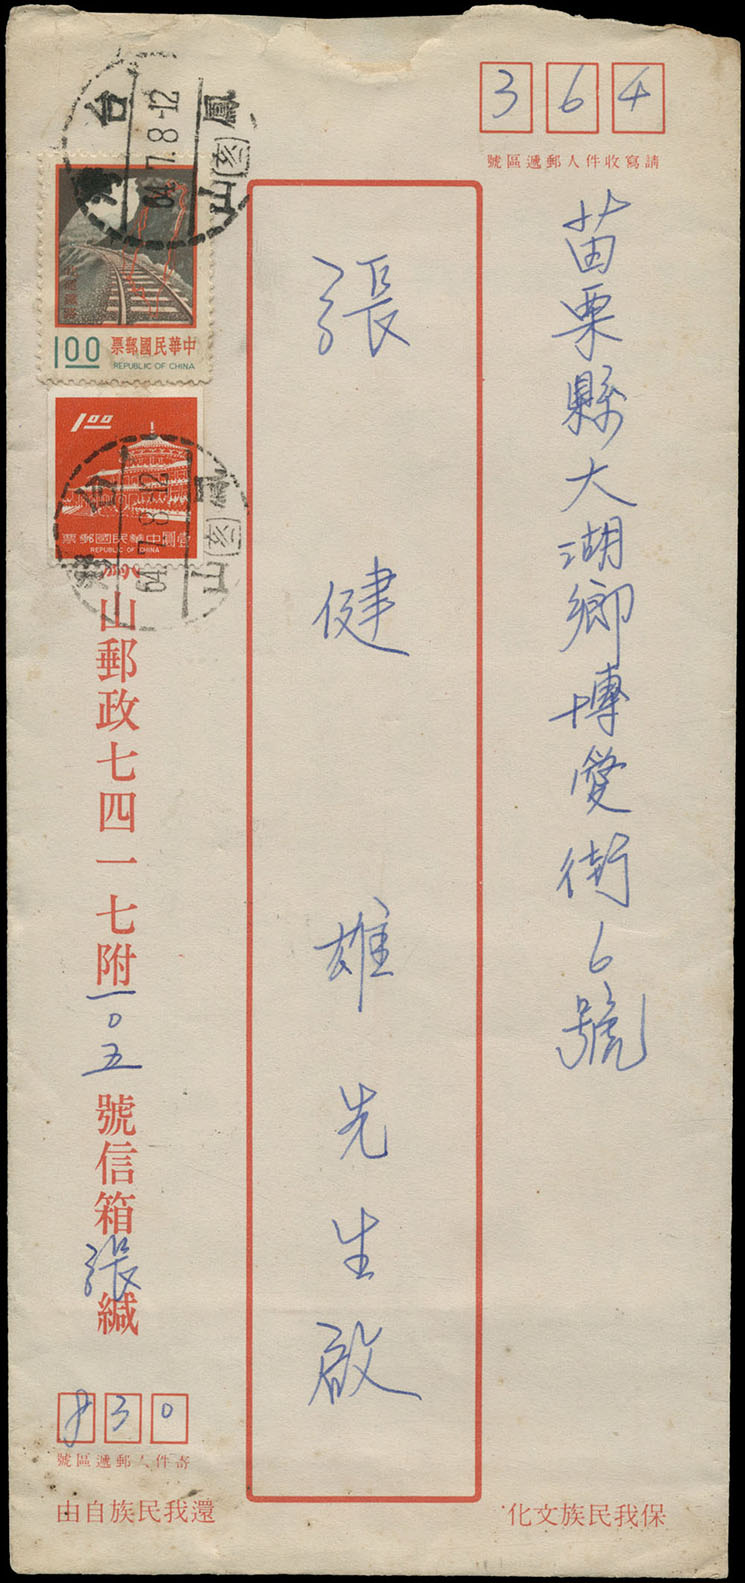 364
請寫收件人郵遞區號
苗栗縣大湖鄉博愛街6號
張健雄先生啟
台灣
64.7.8-12
鳳山
(亥)
北迴鐵路
1.00
中華民國郵票
REPUBLIC OF CHINA
1.00
中華民國郵票
REPUBLIC OF CHINA
台灣
64.7.8-12
山
(亥)
山郵政七四一七附一〇五號信箱張緘
830
寄件人郵遞區號
還我民族自由
保我民族文化